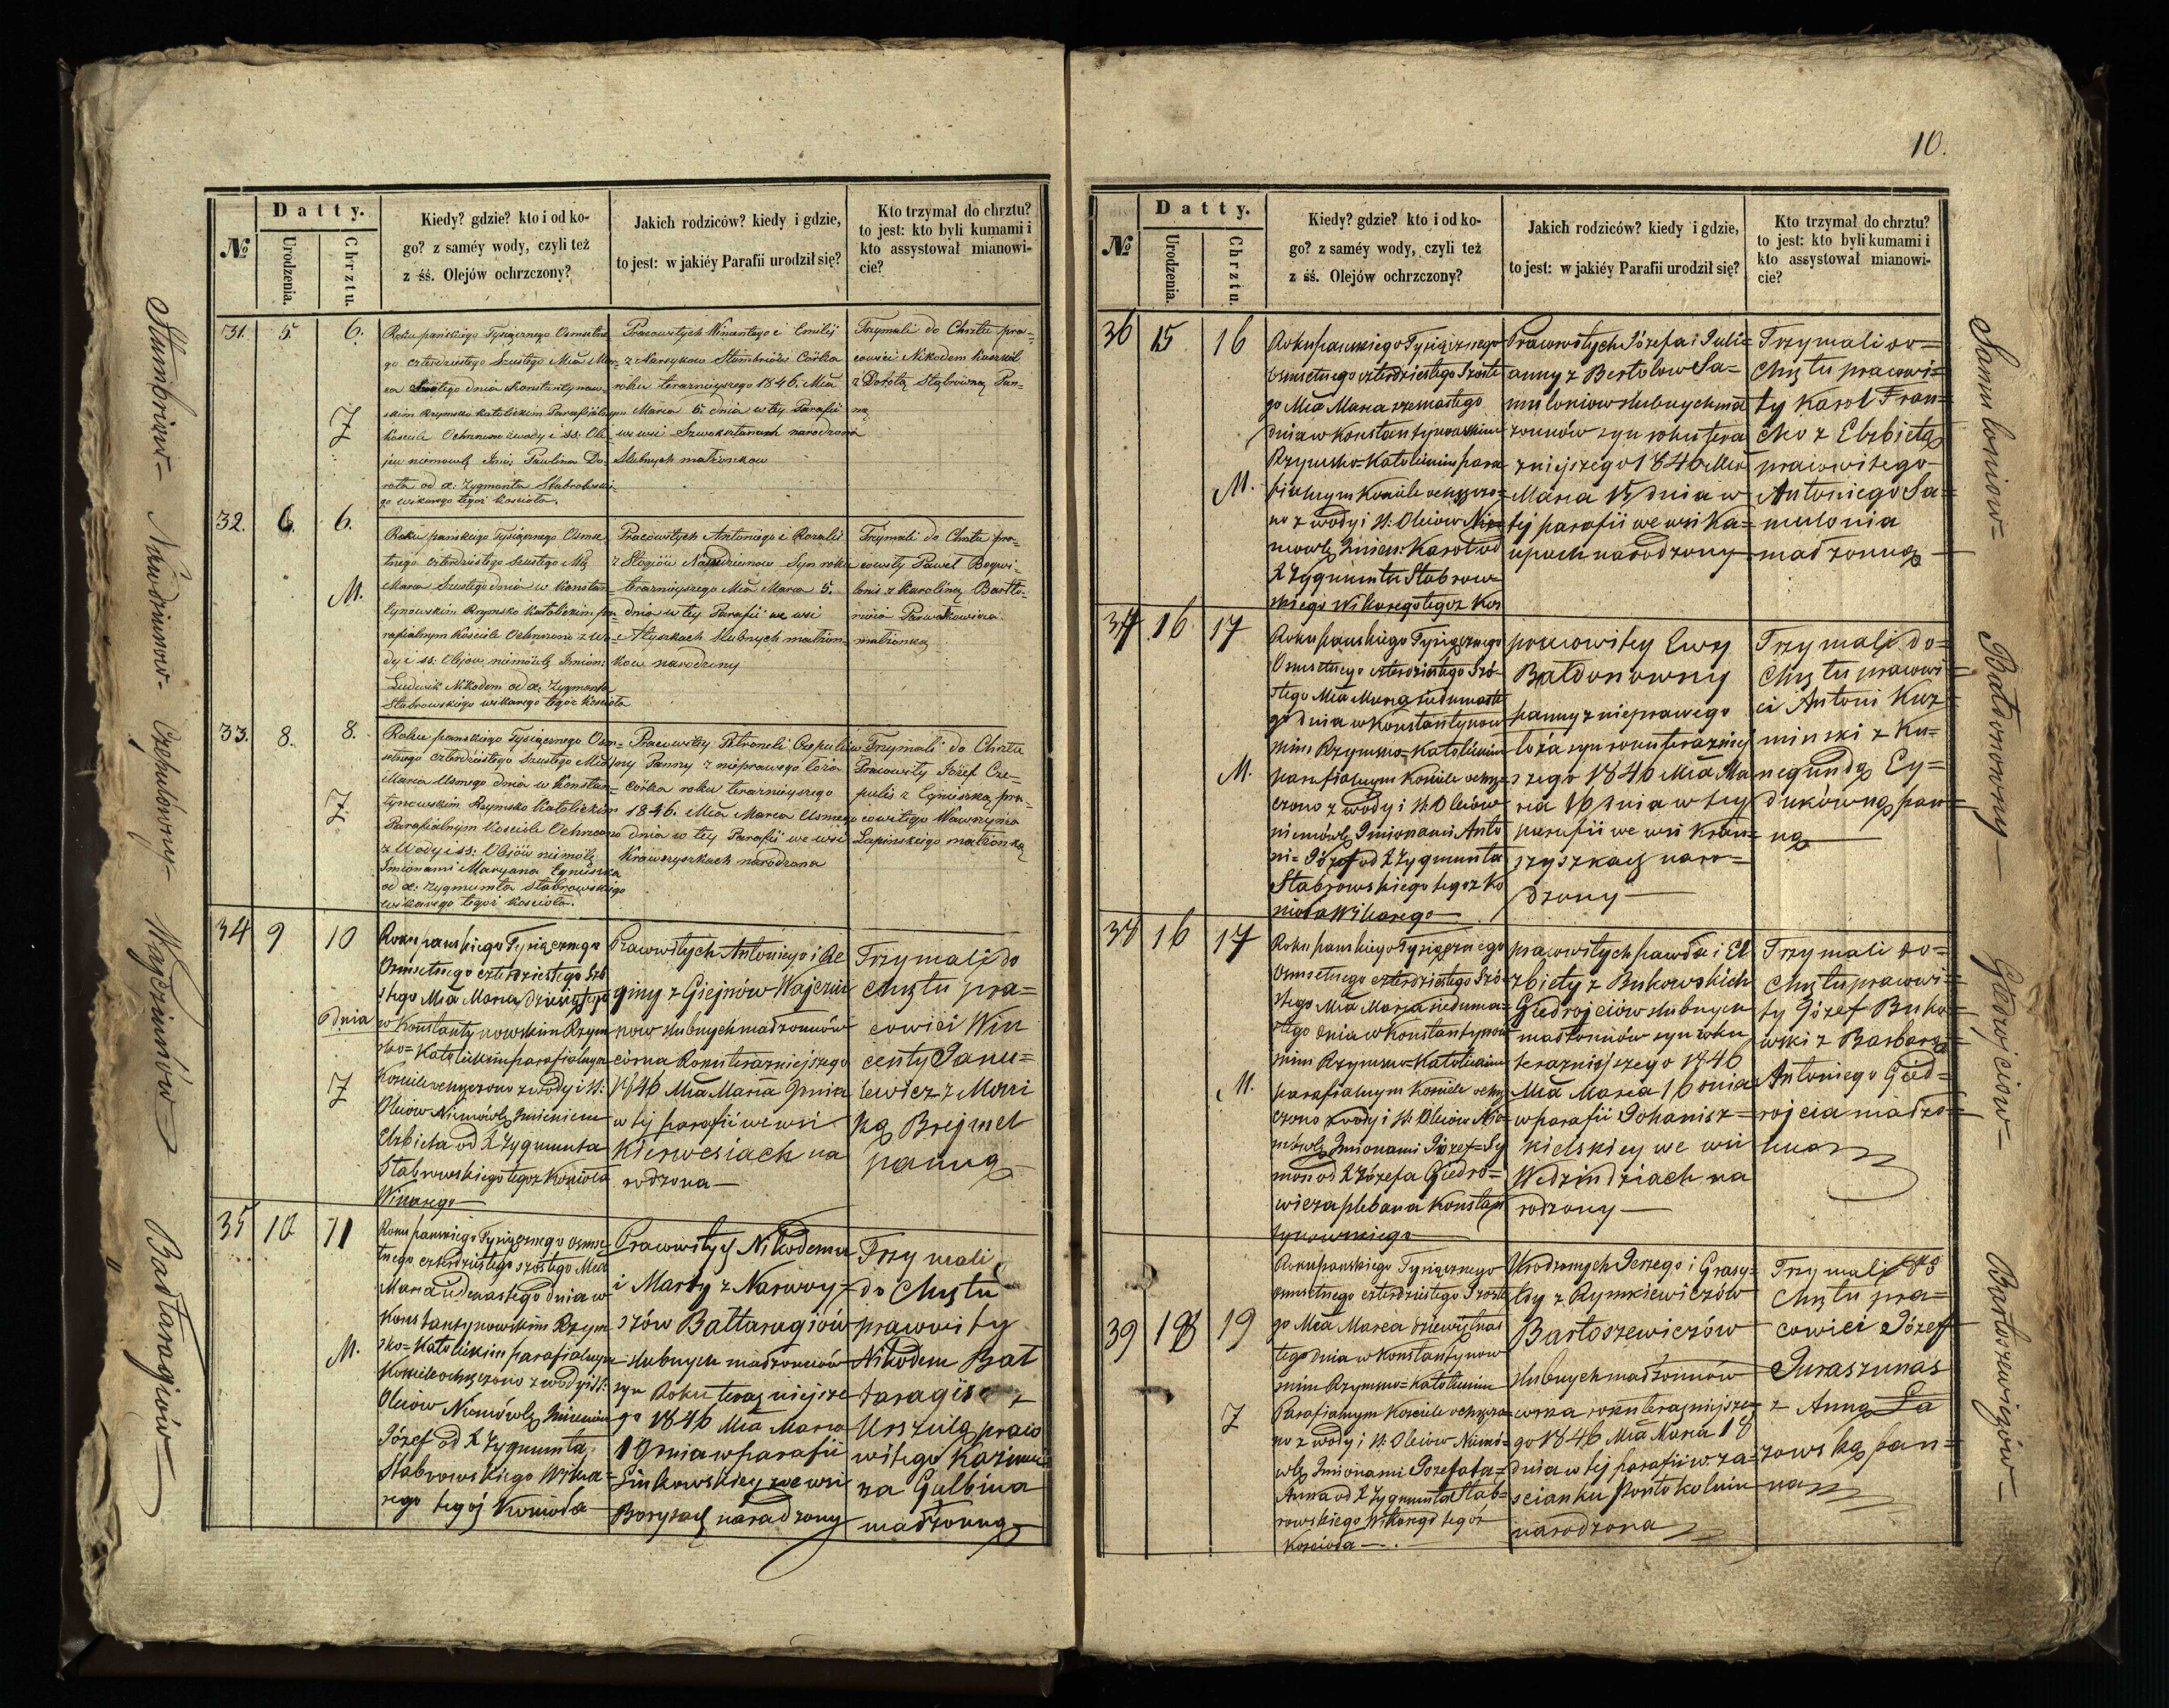 Datty.
№
Urodzenia.
Chrztu.
Kiedy? gdzie? kto i od ko-
go? z saméy wody, czyli też
z śś. Olejów ochrzczony?
Jakich rodziców? kiedy i gdzie,
to jest: w jakiéy Parafii urodził się?
Kto trzymał do chrztu?
to jest: kto byli kumami i
kto assystował mianowi-
cie?
31. 5. 6.
Ż
Roku pańskiego Tysiącznego Osmsetne
go czterdziestego Szustego Mca Mar-
ca dnia Konstantynow-
skim Rzymsko Katolickim Parafialnym
Kościele Ochrzczono z wody i ss: Ole
jów niemowlę Jmię Paulina Do-
rota od X. Zygmonta Stabrowskie-
go wikarego tegoż kościoła.
Pracowitych Winantego i Emilij
z Narsykow Stumbriów Córka
roku terazniejszego 1846. Mca
Marca 5. dnia w tey Parafii
we wsi narodzona
Slubnych małżonkow
Trzymali do Chrztu pra-
cowici Nikodem
z Dorotą Stąbrówną Pan-
ną
32. 6. 6.
M.
Roku pańskiego Tysiącznego Osmse-
tnego czterdziestego Szustego Mca
Marca Szustego dnia w Konstan-
tynowskim Rzymsko Katolickim pa-
rafialnym Kościele Ochrzczono z wo-
dy i ss: Olejów niemowlę Jmion:
Ludwik Nikodem od X. Zygmonta
Stabrowskiego wikarego tegoż Kościoła
Pracowitych Antoniego i Rozalii
z Syn roku
terazniejszego Mca Marca 5.
dnia w tey Parafii we wsi
Atyszkach Slubnych małżon-
kow narodzony
Trzymali do Chrztu pra-
cowity Paweł Bogwi-
łonis z Karoliną Bartło-
mieia
małżonką
33. 8. 8.
Ż
Roku pańskiego Tysiącznego Osm-
setnego czterdziestego Szustego Mca
Marca Usmego dnia w Konstan-
tynowskim Rzymsko Katolickim
Parafialnym Kościele Ochrzczono
z Wody i ss: Olejów niemowlę
Jmionami Maryana Egnieszka
od X. Zygmunta Stabrowskiego
wikarego tegoż kościoła.
Pracowitey Petroneli Czepulow
ny Panny z nieprawego łoża
Córka roku terazniejszego
1846. Mca Marca Usmego
dnia w tey Parafii we wsi
Krawszyszkach narodzona
Trzymali do Chrztu
Pracowity Józef Cze-
pulis z Egnieszką pra-
cowitego Wawrzyna
Łapinskiego małżonką
34 9 10
dnia
Ż
Roku pańskiego Tysiącznego
Osmsetnego czterdziestego Szó
stego Mca Marca dziesiątego
w Konstantynowskim Rzym
sko=Katolickim parafialnym
Kościele ochrzczono z wody i ss:
Oleiów Niemowlę Jmieniem
Elzbieta od X Zygmunta
Stabrowskiego tegoż Kościoła
Wikarego
Pracowitych Antoniego i Re
giny z Giejnów Wajczin
now slubnych małżonków
córka Roku terazniejszego
1846 Mca Marca 9 dnia
w tej parafii we wsi
Kierwesiach na
rodzona
Trzymali do
chrztu pra=
cowici Win
centy Janu=
lewicz z Mari
ką Brejmel
panną
35 10 11
M.
Roku pańskiego Tysiącznego osmse
tnego czterdziestego szóstego Mca
Marca dnia w
Konstantynowskim Rzym
sko=Katolickim parafialnym
Kościele ochrzczono z wody i ss:
Oleiów Niemowlę Jmieniem
Józef od X Zygmunta
Stabrowskiego Wika=
rego tegoż Kościoła
Pracowitych Nikodema
i Marty z Narwoy=
szów Battaragiów
slubnych małżonków
syn Roku teraz niejsze
go 1846 Mca Marca
10 dnia w parafii
Linkowskiey we wsi
narodzony
Trzymali
do Chrztu
pracowity
Nikodem Bat
taragis z
Urszulą praco
witego Kazimie
rza Gulbina
małżonką
Stumbriow-
Czepulówny-
Wayczinów
Battaragiow-
10.
Datty.
№
Urodzenia.
Chrztu.
Kiedy? gdzie? kto i od ko-
go? z saméy wody, czyli też
z śś. Olejów ochrzczony?
Jakich rodziców? kiedy i gdzie,
to jest: w jakiéy Parafii urodził się?
Kto trzymał do chrztu?
to jest: kto byli kumami i
kto assystował mianowi-
cie?
36 15 16
M.
Roku pańskiego Tysiącznego
osmsetnego czterdziestego Szoste
go Mca Marca szesnastego
dnia w Konstantynowskim
Rzymsko=Katolickim para
fialnym Kościele ochrzczo=
no z wody i ss: Oleiów Nie=
mowlę Jmien: Karol od
X Zygmunta Stabrow=
skiego Wikarego tegoż Koś
Pracowitych Józefa i Juli=
anny z Bertolow Sa=
muloniow slubnych mał
żonków syn roku tera
zniejszego 1846 Mca
Marca 15 dnia w
tej parafii we wsi Ka=
upach narodzony
Trzymali do=
Chrztu pracowi=
ty Karol Fran=
cko z Elzbietą
pracowitego
Antoniego Sa=
mulonia
małżonką
37 16 17
M.
Roku pańskiego Tysiącznego
Osmsetnego czterdziestego Szó=
stego Mca Marca siedmnaste
go dnia w Konstantynow
skim Rzymsko=Katolickim
parafialnym Kościele ochrz=
czono z wody i ss: Oleiów
niemowlę Jmionami Anto
ni=Józef od X Zygmunta
Stabrowskiego tegoż Ko
ścioła Wikarego
pracowitey Ewy
Bałdonowny
panny z nieprawego
łoża syn roku teraznie
szego 1846 Mca Ma
rca 16 dnia w tey
parafii we wsi Kraw=
szyszkach naro=
dzony
Trzymali do=
Chrztu pracowi=
ci Antoni Kuz
minski z Ku=
negundą Ey=
dukówną pan=
ną
38 16 17
M.
Roku pańskiego Tysiącznego
Osmsetnego czterdziestego Szó=
stego Mca Marca siedmna=
stego dnia w Konstantynow
skim Rzymsko=Katolickim
parafialnym Kościele ochrz
czono z wody i ss: Oleiów Nie=
mowlę Jmionami Józef=Sy
mon od X Józefa Giedro=
wicza plebana Konstan
tynowskiego
pracowitych Pawła i El
zbiety z Bukowskich
Giedrojciów slubnych
małżonków syn roku
terazniejszego 1846
Mca Marca 16 dnia
w parafii Johanisz=
kielskiey we wsi
Wedzindziach na
rodzony
Trzymali do=
Chrztu pracowi=
ty Józef Buko=
wski z Barbarą
Antoniego Gied=
rojcia małżo=
nką
39 18 19
Ż
Roku pańskiego Tysiącznego
osmsetnego czterdziestego Szoste
go Mca Marca dziewiętnas
tego dnia w Konstantynow
skim Rzymsko=Katolickim
Parafialnym Kościele ochrzczo=
no z wody i ss: Oleiów Niemo=
wlę Jmionami Jozefata=
Anna od X Zygmunta Stab=
rowskiego Wikarego tegoż
Kościoła
Urodzonych Jerzego i Grasy=
ldy z Rymkiewiczów
Bartoszewiczów
slubnych małżonków
córka roku teraznieysze=
go 1846 Mca Marca 18
dnia w tej parafii w za=
scianku Pontokolniu
narodzona
Trzymali do
Chrztu pra=
cowici Józef
Juraszunas
z Anną Ła
zowską pan=
ną
Samuloniow-
Bałdonowny-
Giedroyciow-
Bartoszewiczów-